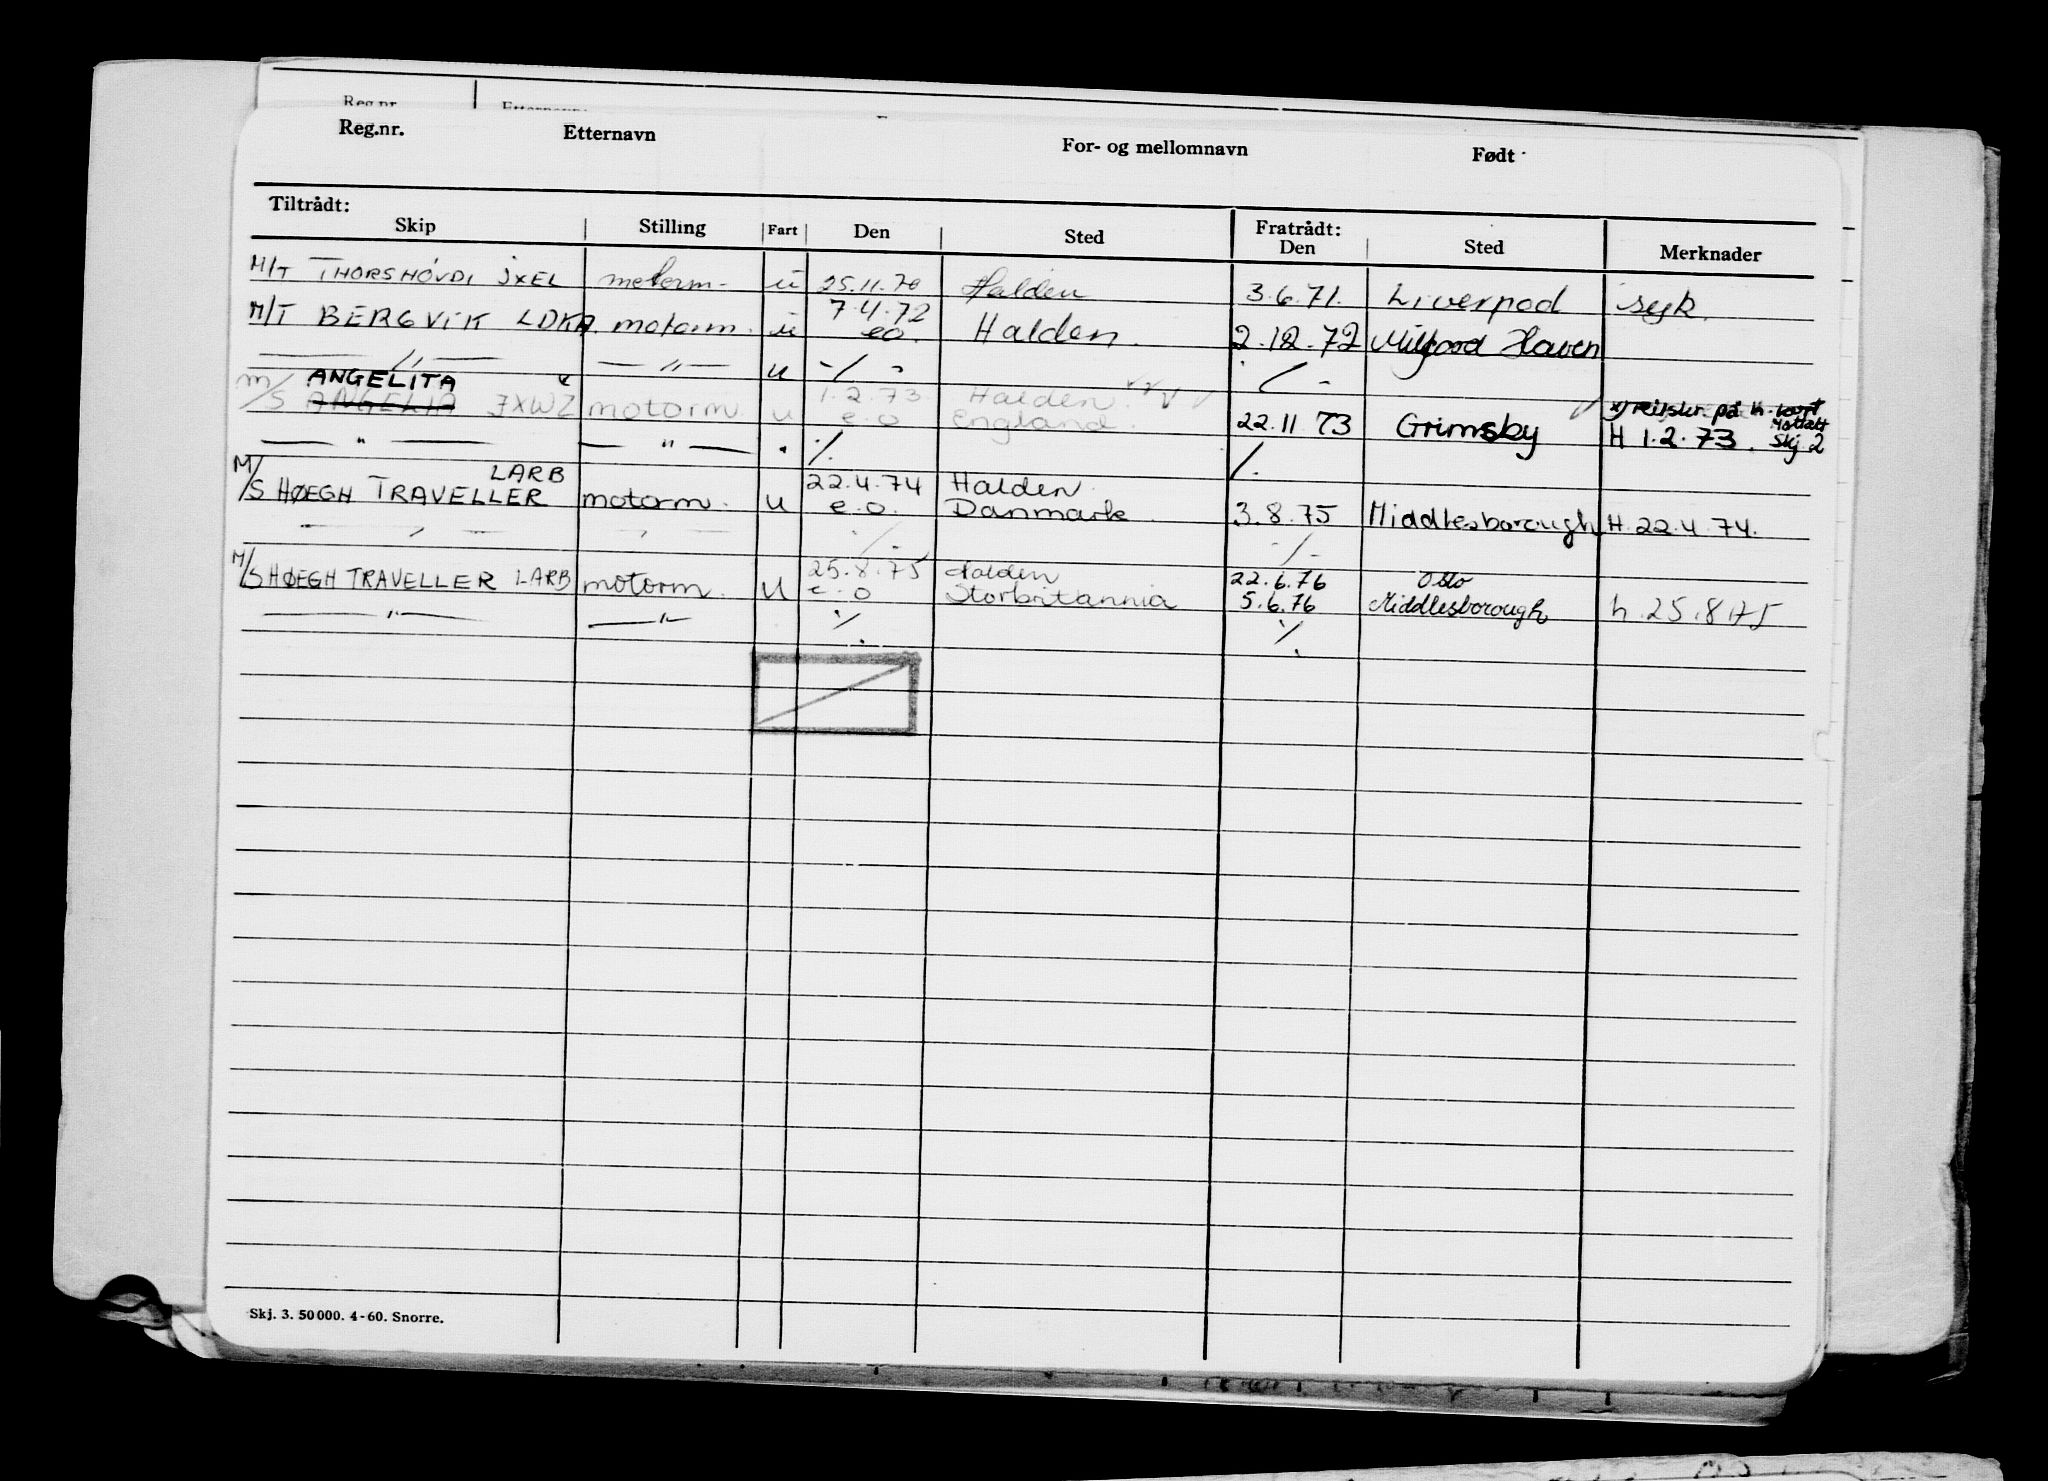 Reg.nr. Etternavn
Reg.nr. Etternavn For- og mellomnavn Født
Tiltrådt: Fratrådt:
Skip Stilling Fart Den Sted Den Sted Merknader
M/T THORSHØVDI JXEL motorm- u 25.11.70 Halden 3.6.71. Liverpool syk.
7.4.72
M/T BERGVIK LDKA motorm. u eo. Halden. 2.12.72 Milford Haven
— " — — " — u -/- -/-
ANGELITA x 1.2.73 Halden x) på h. kort Mottatt
M/S ANGELIA JXWZ motorm. u e.o England. 22.11 73 Grimsby H 1.2.73. Skj. 2
— " — — " — . ./. /.
LARB 22.4.74 Halden
M/S HØEGH TRAVELLER motorm. u e.o. Danmark. 3.8.75 Middlesborough H. 22.4.74.
— " — — " — -/- -/-
25.8.75 Halden 22.6.76 Oslo
M/S HØEGH TRAVELLER LARB motorm. u e.o Storbritannia 5.6.76 Middlesborough h. 25.8.75
— " — — " — ./. ./.
Skj. 3. 50000. 4-60. Snorre.